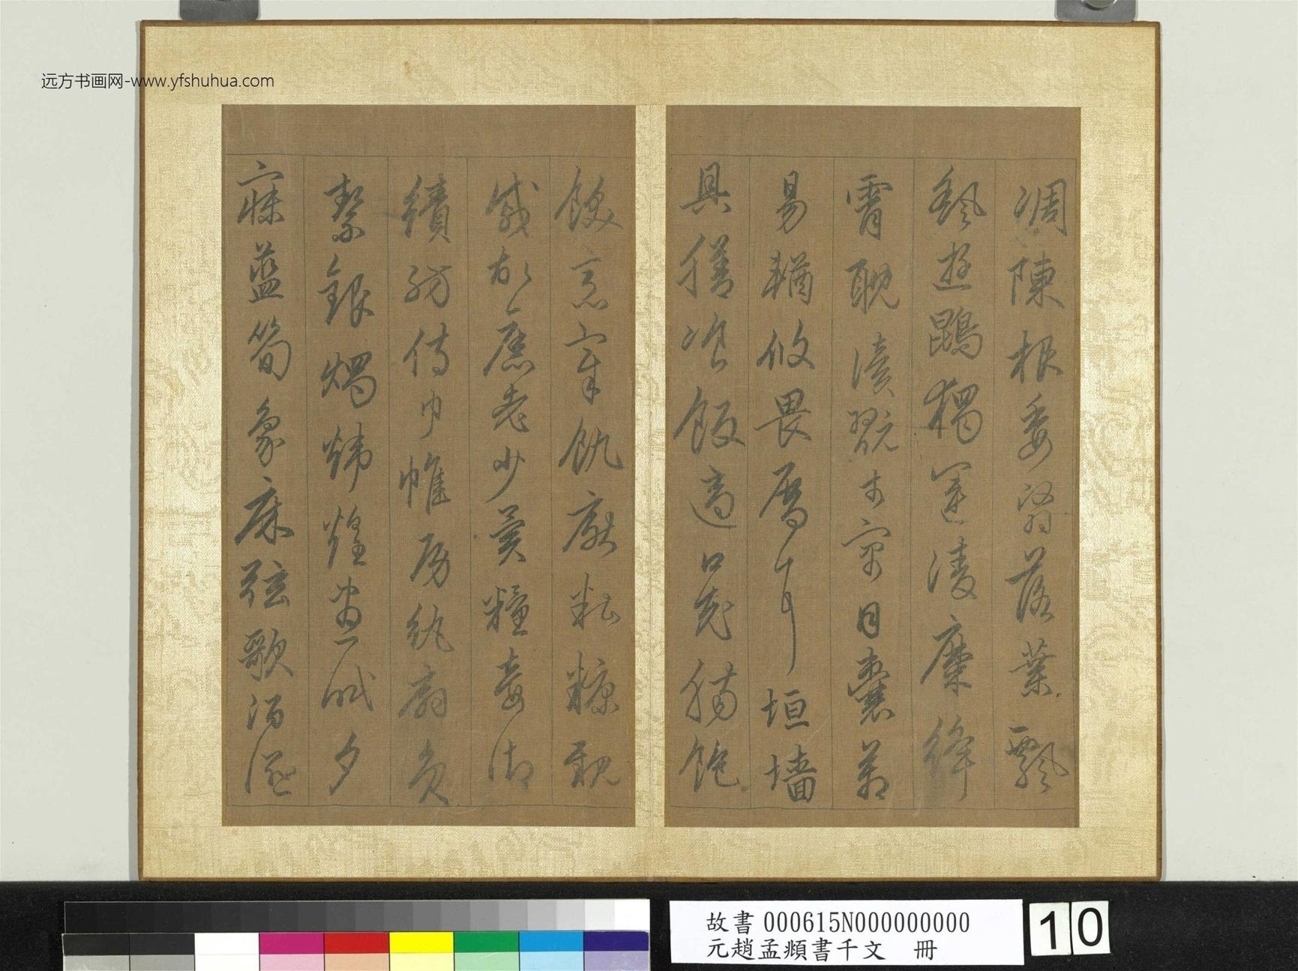 远方书画网-www.yfshuhua.com
凋陳根委翳落葉飄
颻遊鵾獨運淩摩絳
霄耽讀翫市寓目囊箱
易輶攸畏屬耳垣墻
具膳飡飯適口充腸飽
飫烹宰飢厭糟糠親
戚故舊老少異糧妾御
績紡侍巾帷房紈扇員
潔銀燭煒煌晝眠夕
寐藍筍象床弦歌酒讌
故書 000615N000000000
元趙孟頫書千文 冊
10